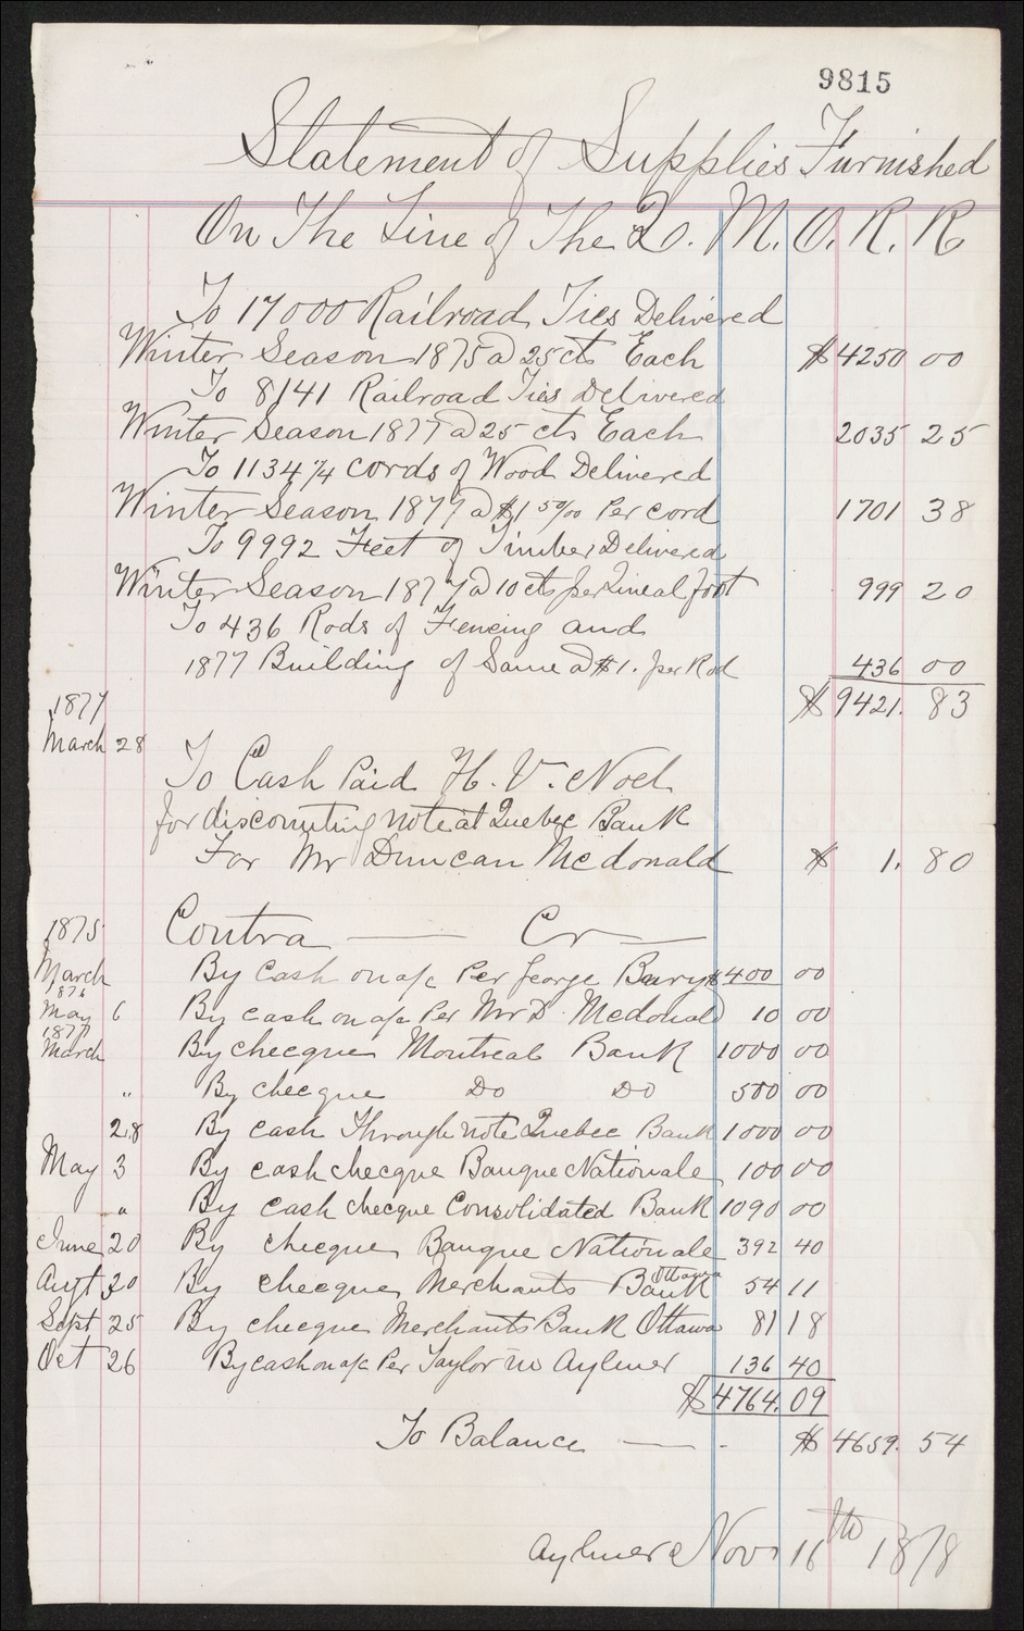 9815
Statement of Supplies Furnished
On The Line of The Q. M. O. R. R
To 17000 Railroad Ties Delivered
Winter Season 1875 @ 25 cts Each $4250 00
To 8141 Railroad Ties Delivered
Winter Season 1877 @ 25 cts Each 2035 25
To 1134 1/4 cords of Wood Delivered
Winter Season 1877 @ $1 50/00 Per cord 1701 38
To 9992 Feet of Timber Delivered
Winter Season 1877 @ 10 cts per Lineal foot 999 20
To 436 Rods of Fencing and
1877 Building of Same @ $1. per Rod 436 00
1877 $9421. 83
March 28
To Cash Paid H. V. Noel
for discounting note at Quebec Bank
For Mr Duncan Mcdonald $ 1. 80
1875 Contra — Cr —
March By Cash on a/c Per George $400 00
1876
May 6 By cash on a/c Per Mr D. Mcdonald 10 00
1877
March By checque Montreal Bank 1000 00
" By checque Do Do 500 00
28 By cash Through note Quebec Bank 1000 00
May 3 By cash checque Banque Nationale 100 00
" By cash checque Consolidated Bank 1090 00
June 20 By checque Banque Nationale 392 40
Augt 30 By checque Merchants Bank Ottawa 54 11
Sept 25 By checque Merchants Bank Ottawa 81 18
Oct 26 By cash on a/c Per Taylor in Aylmer 136 40
$4764. 09
To Balance — - $ 4659. 54
Aylmer Nov 11th 1878